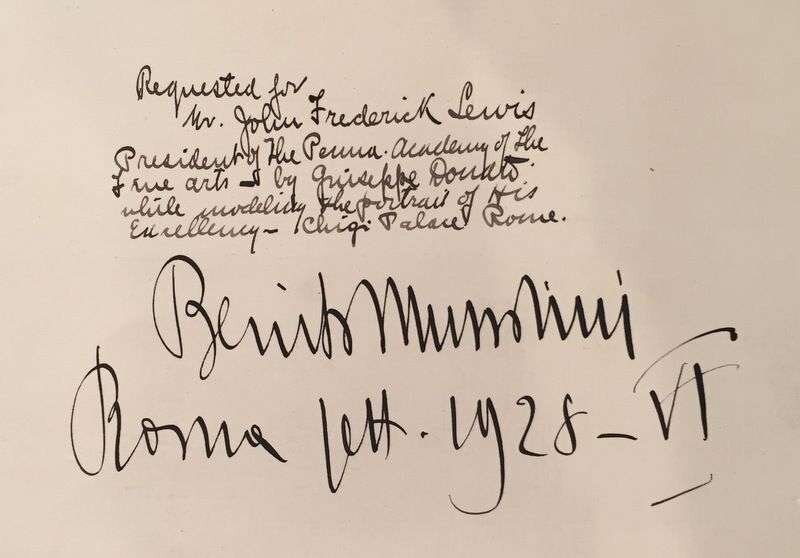 Requested for
Mr. John Frederick Lewis
President of The Penna. Academy of The
Fine arts — by Guiseppe Donato
while modeling the portrait of His
Excellency — Chigi Palace Rome.
Benito Mussolini
Roma sett. 1928 — VI